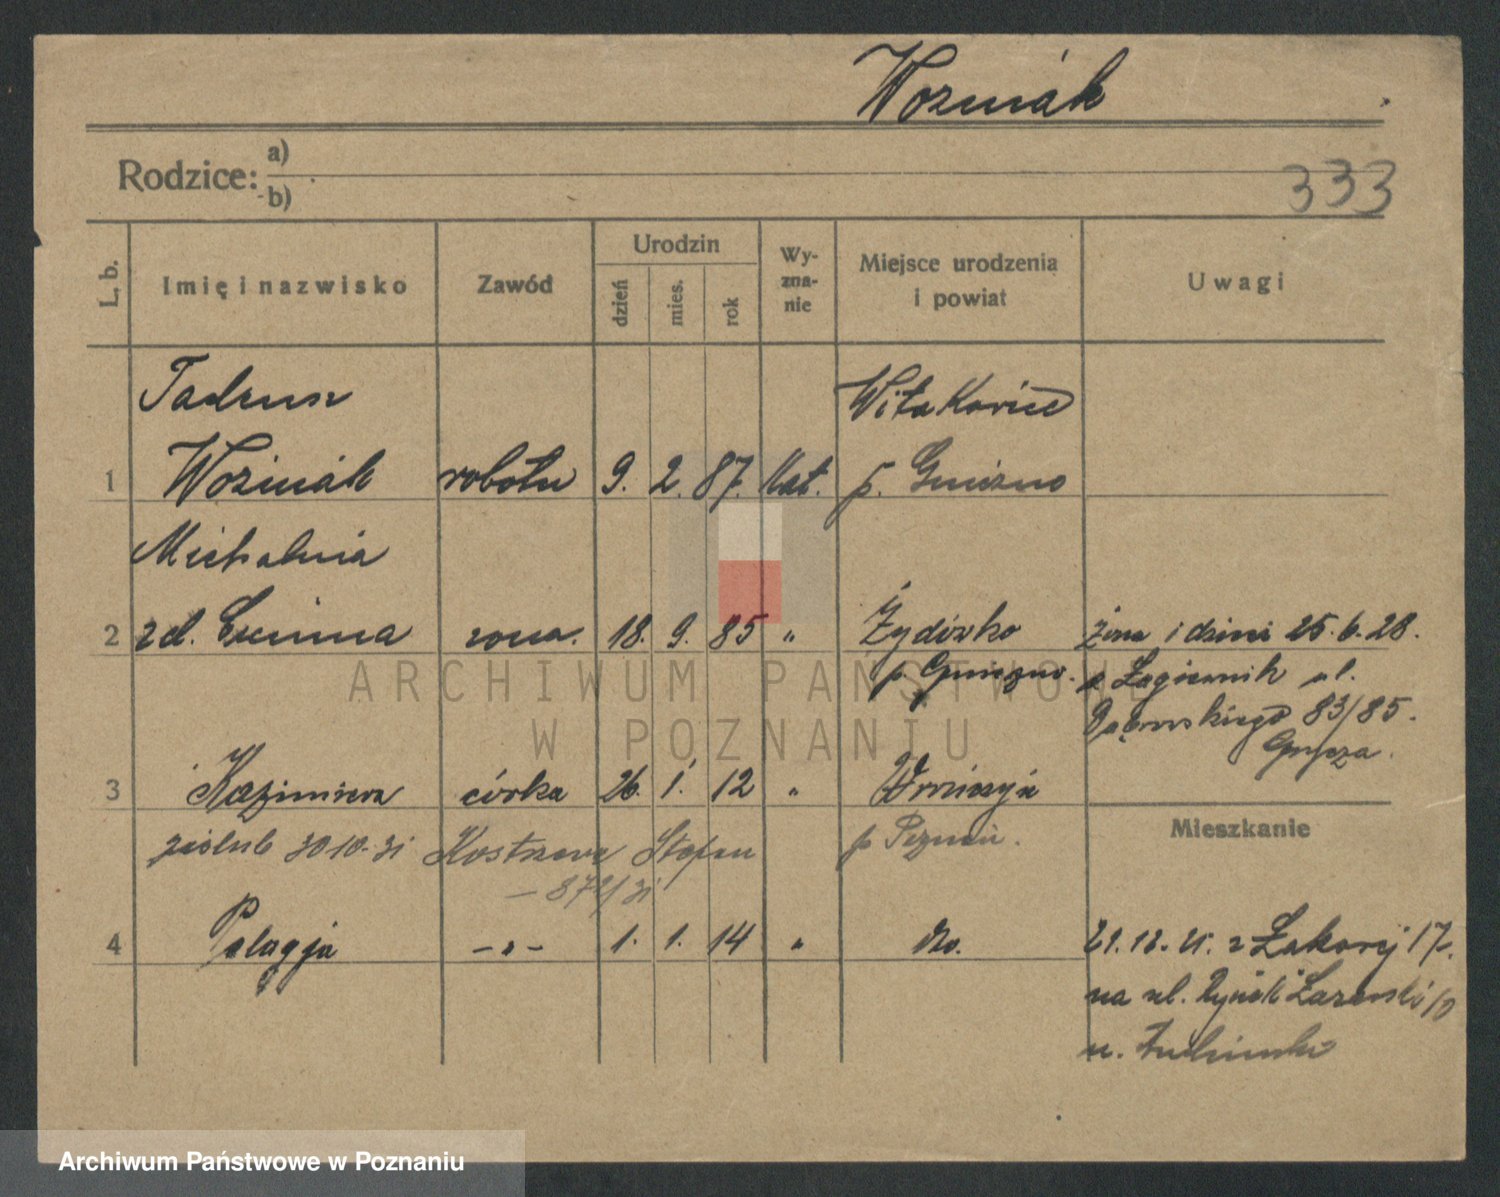 Woźniak
Rodzice: a)
b)
333
L. b.
Imię i nazwisko
Zawód
Urodzin
dzień
mies.
rok
Wy-
zna-
nie
Miejsce urodzenia
i powiat
Uwagi
Tadeusz
Witakowice
1 Woźniak robotn 9. 2. 87. Kat. p. Gniezno
Michalina
2 zd. żona. 18. 9. 85 „ Żydówko żona i dzieci 25.6.28.
p. Gniezno. Łagiewnik ul.
83/85.
3 Kazimiera córka 26. 1. 12 „
Mieszkanie
zaślub 30.10.31 Kostrzewa Stefan p Poznań.
4 Pelagja –„– 1. 1. 14 „ do. z Łąkowej 17.
na ul. Rynek Łazarski
ARCHIWUM PAŃSTWOWE
W POZNANIU
Archiwum Państwowe w Poznaniu